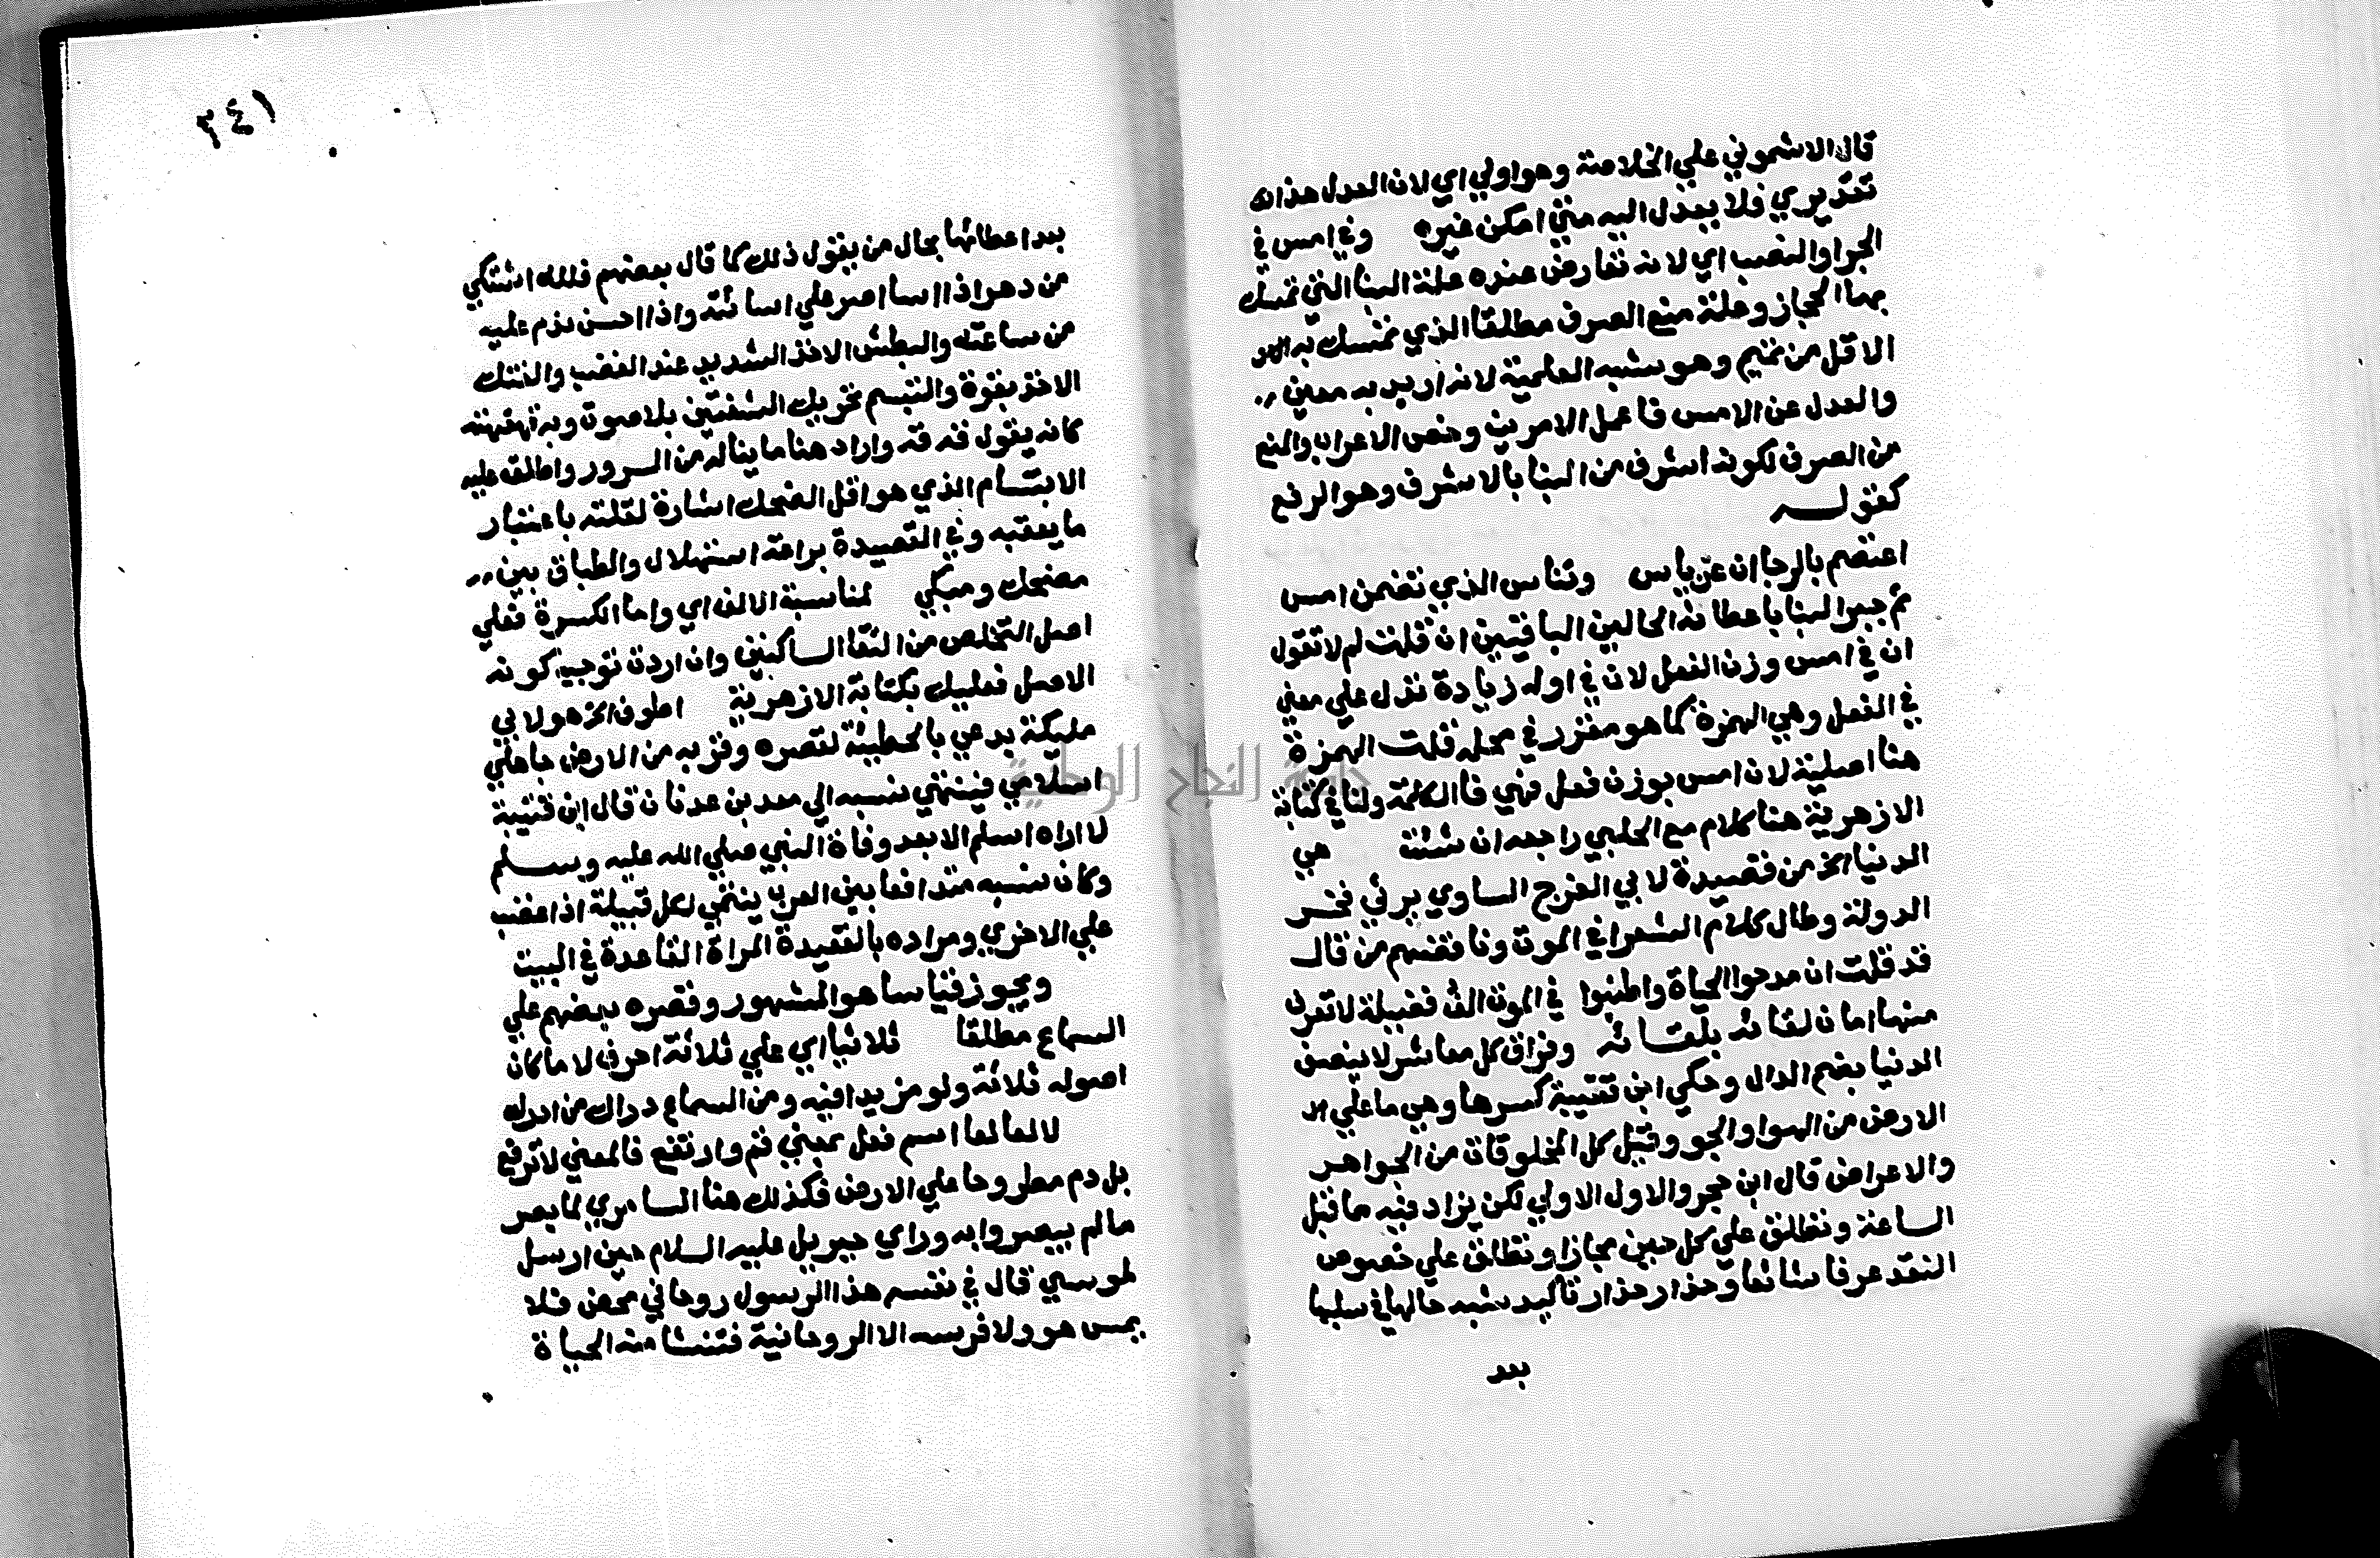 قال الاشموني علي الخلاصة وهو اولي اي لان العدل هذا لك
تقديري فلا يعدل اليه متي امكن غيره وفي امس في
الجر والنصب اي لانه تعارض عنده علة البنا التي تمسك
بها الحجاز وعلة منع الصرف مطلقا الذي تمسك به
الاقل من تميم وهو شبه العلمية لانه اريد به معين
والعدل عن الامس فاعمل الامرين وخص الاعراب والمنع
من الصرف لكونه اشرف من البنا بالاشرف وهو الرفع
كقولـــه
اعتصم بالرجا ان عن ياس وتناس الذي تضمن امس
ثم جبر البنا باعطائه الحالين الباقيين ان قلت لم لا تقول
ان في امس وزن الفعل لان في اوله زيادة تدل علي معني
في الفعل وهي الهمزة كما هو مقرر في محله قلت الهمزة
هنا اصلية لان امس بوزن فعل فهي فا الكلمة ولنا في كتابة
الازهرية هنا كلام مع الحلبي راجعه ان شئت هي
الدنيا الخ من قصيدة لابي الفرج الساوي يرثي فخر
الدولة وطال كلام الشعرا في الموت وناقضهم من قال
قد قلت ان مدحوا الحياة واطنبوا في الموت الف فضيلة لا تعرف
منها امان لقائه بلقائه وفراق كل معاشر لا ينصف
الدنيا بضم الدال وحكي ابن قتيبة كسرها وهي ما علي
الارض من الهوا والجو وقيل كل المخلوقات من الجواهر
والاعراض قال ابن حجر والاول الاولي لكن يزاد فيه مما قبل
الساعة وتطلق علي كل حين مجازا وتطلق علي خصوص
النقد عرفا شائعا وحذار حذار تاكيد شبه حالها في سلبها
بعد
٢٤١
بعد اعطائها بحال من يقول ذلك كما قال بعضهم فلله اشتكي
من دهر اذا اسا اصر علي اسائته واذا احسن ندم عليه
من ساعته والبطش الاخذ الشديد عند الغضب والفتك
الاخذ بقوة والتبسم تحريك الشفتين بلا صوت وبه قهقهة
كانه يقول قه قه واراد هنا ما يناله من السرور واطلق عليه
الابتسام الذي هو اقل الضحك اشارة لقلته باعتبار
ما يعقبه وفي القصيدة براعة استهلال والطباق بين
مضحك ومبكي لمناسبة الالف اي واما الكسرة فعلي
اصل التخلص من التقا الساكنين وان اردت توجيه كونه
الاصل فعليك بكتابة الازهرية اطوف الخ هو لابي
مليكة يدعي بالحطيئة لقصره وقربه من الارض جاهلي
اسلامي فينتهي نسبه الي معد بن عدنان قال ابن قتيبة
لا اراه اسلم الا بعد وفاة النبي صلي الله عليه وسلم
وكان نسبه متدافعا بين العرب ينتمي لكل قبيلة اذا غضب
علي الاخري ومراده بالقعيدة المراة القاعدة في البيت
ويجوز قياسا هو المشهور وقصره بعضهم علي
السماع مطلقا ثلاثيا اي علي ثلاثة احرف لا ما كان
اصوله ثلاثة ولو مزيدا فيه ومن السماع دراك من ادرك
لالعا لعا اسم فعل بمعني قم وارتفع فالمعني لا ترفع
بل دم مطروحا علي الارض فكذلك هنا السامري لما بصر
ما لم يبصروا به وراي جبريل عليه السلام حين ارسل
لموسي قال في نفسه هذا الرسول روحاني محض فلا
يمس هو ولا فرسه الا الروحانية فتنشا منه الحياة
جامعة النجاح الوطنية